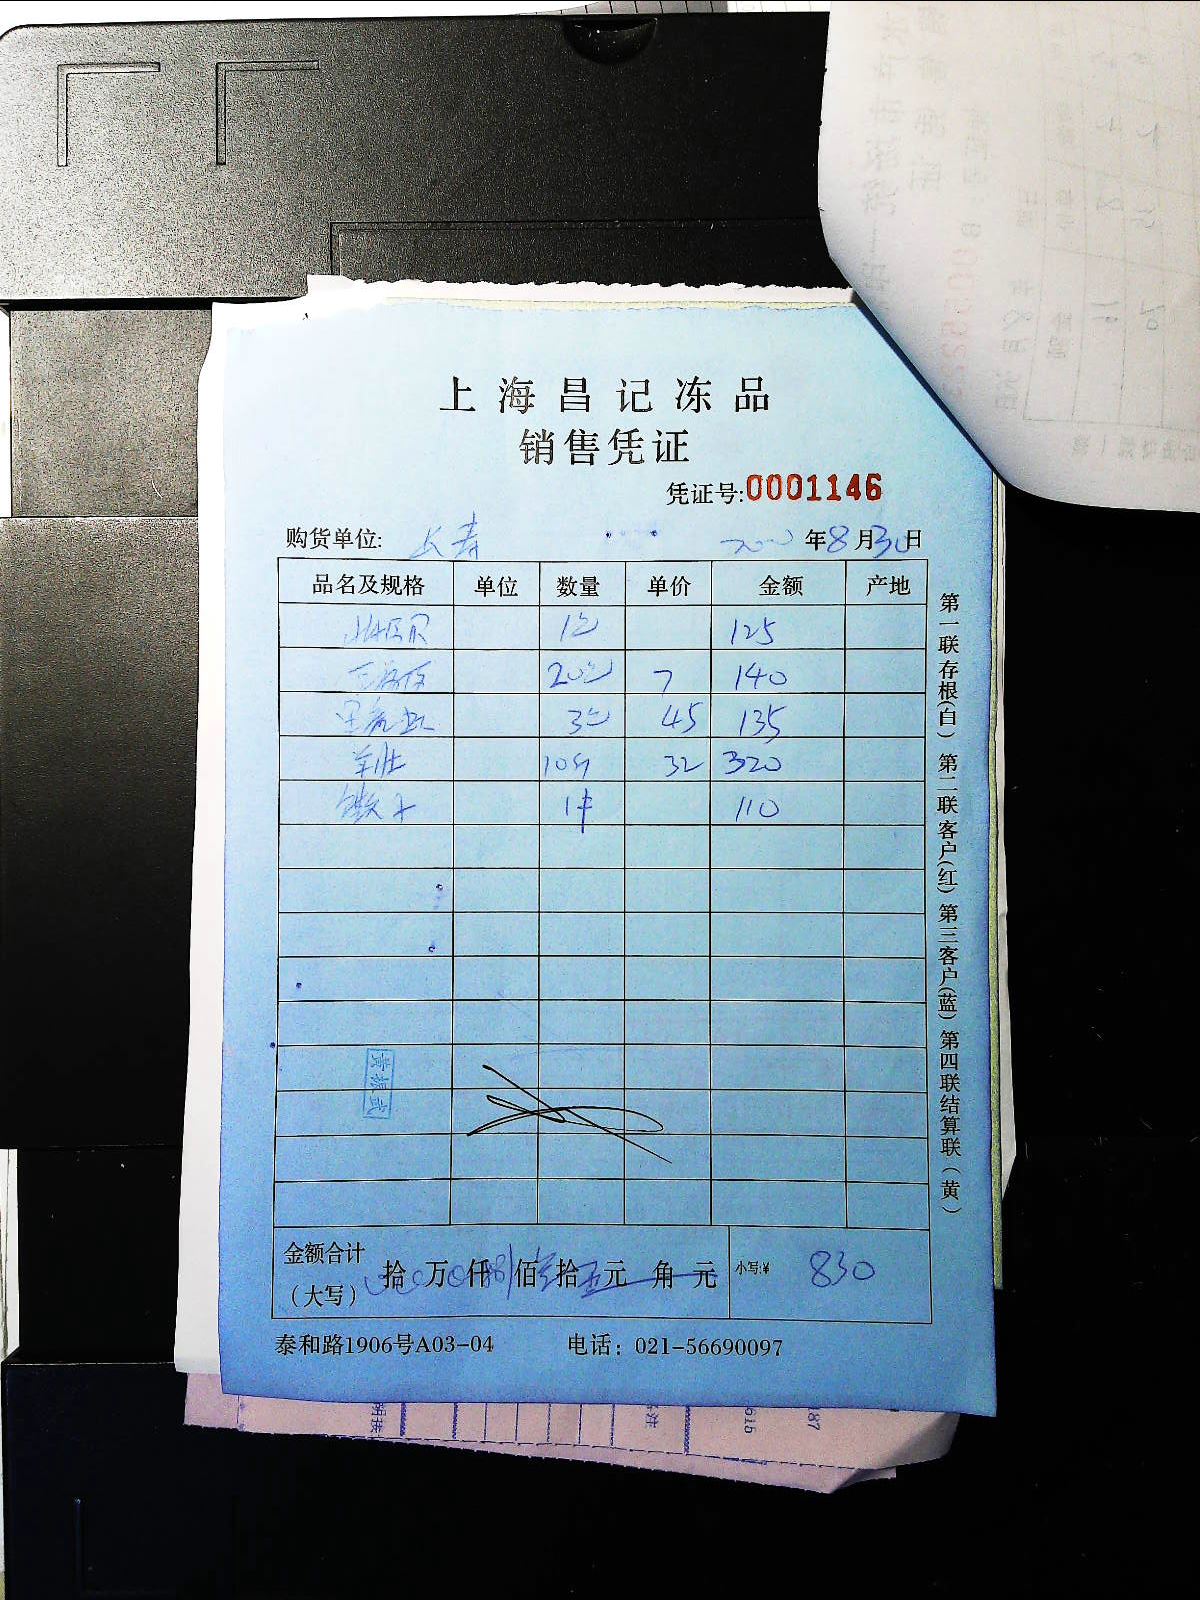 上海昌记冻品
销售凭证
凭证号:0001146
购货单位: 长寿 年8月30日
品名及规格 单位 数量 单价 金额 产地
1包 125
20包 7 140
3包 45 135
羊肚 10斤 32 320
1件 110
黄振武
金额合计
(大写) 拾 万 仟 佰 拾 元 角 元 小写:¥ 830
泰和路1906号A03-04 电话：021-56690097
第一联存根(白) 第二联客户(红) 第三客户(蓝) 第四联结算联(黄)